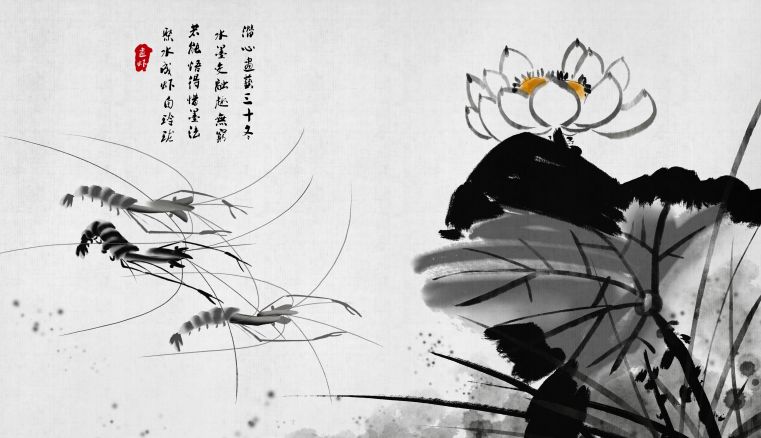 潜心画艺三十冬
水墨交融趣無窮
若能悟得惜墨法
聚水成虾自玲珑
画虾